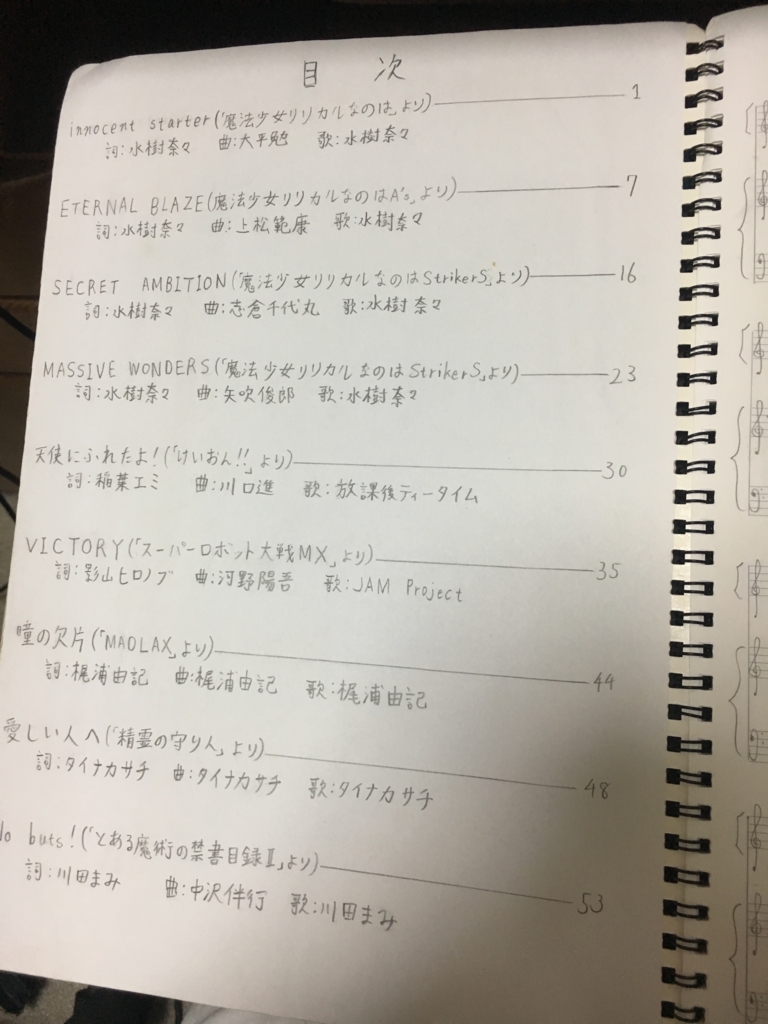 目 次
innocent starter(「魔法少女リリカルなのは」より) 1
詞:水樹奈々 曲:大平勉 歌:水樹奈々
ETERNAL BLAZE(魔法少女リリカルなのはA's」より) 7
詞:水樹奈々 曲:上松範康 歌:水樹奈々
SECRET AMBITION(「魔法少女リリカルなのはStrikerS」より) 16
詞:水樹奈々 曲:志倉千代丸 歌:水樹奈々
MASSIVE WONDERS(「魔法少女リリカルなのはStrikerS」より) 23
詞:水樹奈々 曲:矢吹俊郎 歌:水樹奈々
天使にふれたよ!(「けいおん!!」より) 30
詞:稲葉エミ 曲:川口進 歌:放課後ティータイム
VICTORY(「スーパーロボット大戦MX」より) 35
詞:影山ヒロノブ 曲:河野陽吾 歌:JAM Project
瞳の欠片(「MADLAX」より) 44
詞:梶浦由記 曲:梶浦由記 歌:梶浦由記
愛しい人へ(「精霊の守り人」より) 48
詞:タイナカサチ 曲:タイナカサチ 歌:タイナカサチ
buts!(「とある魔術の禁書目録Ⅱ」より) 53
詞:川田まみ 曲:中沢伴行 歌:川田まみ